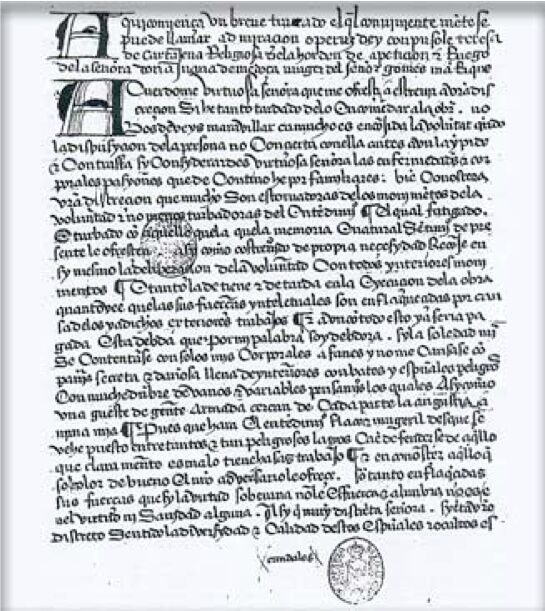 Aqui comiença vn breue tractado el ql conuiniente mẽte se
puede llamar admiraçion operum dey conpusole teresa
de Cartajena Religiosa dela horden de a petiçion & Ruego
de la señora doña Juana de mẽdoça muger del señor gomes manrique
Acuerdome virtuosa señora que me ofresçi a escreuir a vrã dis
creçion Si he tanto tardado de lo Encomendar ala obra . no
vos deueys marauillar ca mucho es encojida la voluntat quãdo
la dispusyçion dela persona no Conçierta con ella antes avn la ynpide
& Contrasta sy Consyderardes virtuosa señora las enfermedades & cor
porales pasyones que de Contino he por familiares : biẽ Conosçera
vrã discreçion que mucho Son estoruadoras delos mouimẽtos dela
voluntad & no menos turbadoras del Entẽdimiẽto ¶ El qual fatigado .
& turbado con aquello que la memoria & natural Sẽtimiẽto de pre
sente le ofresçen asy como costreñido de propia neçesydad Recoje en
sy mesmo la deliberaçion dela voluntad Con todos ynteriores moui
mentos ¶ & tanto la detiene & detarda en la Execuçion dela obra
quanto vee que las sus fuerças ynteletuales son enflaqueçidas por cau
sa delos ya dichos exteriores trabajos ¶ & avn con todo esto ya seria pa
gada Esta debda que por mi palabra soy debdora . sy la soledad mia
Se Contentase con solos mis Corporales afanes y no me Causase cõ
pañia secreta & dañosa llena de ynteriores conbates y espũales peligros
Con muchedũbre de vanos & variables pensamiẽtos los quales Asy como
vna hueste de gente Armada çercan de Cada parte la angustiada
anima mia ¶ Pues que hara el entẽdimiẽto flaco & mugeril desque se
vehe puesto entre tantos & tan peligrosos lazos Ca ẽ defenderse de aqllo
que clara mẽte es malo tiene hasaz trabajo ¶ & en conosçer aqllo q
so color de bueno El nro adversario le ofreçe son tanto enflaqçidas
sus fuerças que sy la virtud soberana nõ le esfuerça & alunbra no es
enel virtud ni Sanidad alguna . Asy q muy discreta señora . syẽta vrõ
discreto Sentido la diversydad & Calidad destos Espũales & ocultos es
candalos